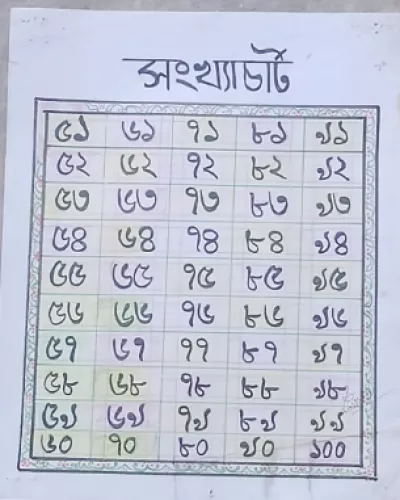 সংখ্যাচার্ট
৫১ ৬১ ৭১ ৮১ ৯১
৫২ ৬২ ৭২ ৮২ ৯২
৫৩ ৬৩ ৭৩ ৮৩ ৯৩
৫৪ ৬৪ ৭৪ ৮৪ ৯৪
৫৫ ৬৫ ৭৫ ৮৫ ৯৫
৫৬ ৬৬ ৭৬ ৮৬ ৯৬
৫৭ ৬৭ ৭৭ ৮৭ ৯৭
৫৮ ৬৮ ৭৮ ৮৮ ৯৮
৫৯ ৬৯ ৭৯ ৮৯ ৯৯
৬০ ৭০ ৮০ ৯০ ১০০